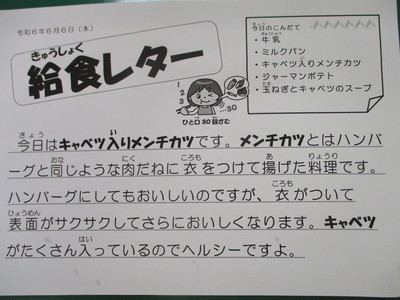 令和6年6月6日（木）
きゅうしょく
給食レター
きょう
今日のこんだて
ぎゅうにゅう
・牛乳
・ミルクパン
・キャベツ入りメンチカツ
・ジャーマンポテト
・玉ねぎとキャベツのスープ
1
2
3
…30
ひと口30回かむ
きょう い
今日はキャベツ入りメンチカツです。メンチカツとはハンバ
おな にく ころも あ りょうり
ーグと同じような肉だねに衣をつけて揚げた料理です。
ころも
ハンバーグにしてもおいしいのですが、衣がついて
ひょうめん
表面がサクサクしてさらにおいしくなります。キャベツ
はい
がたくさん入っているのでヘルシーですよ。